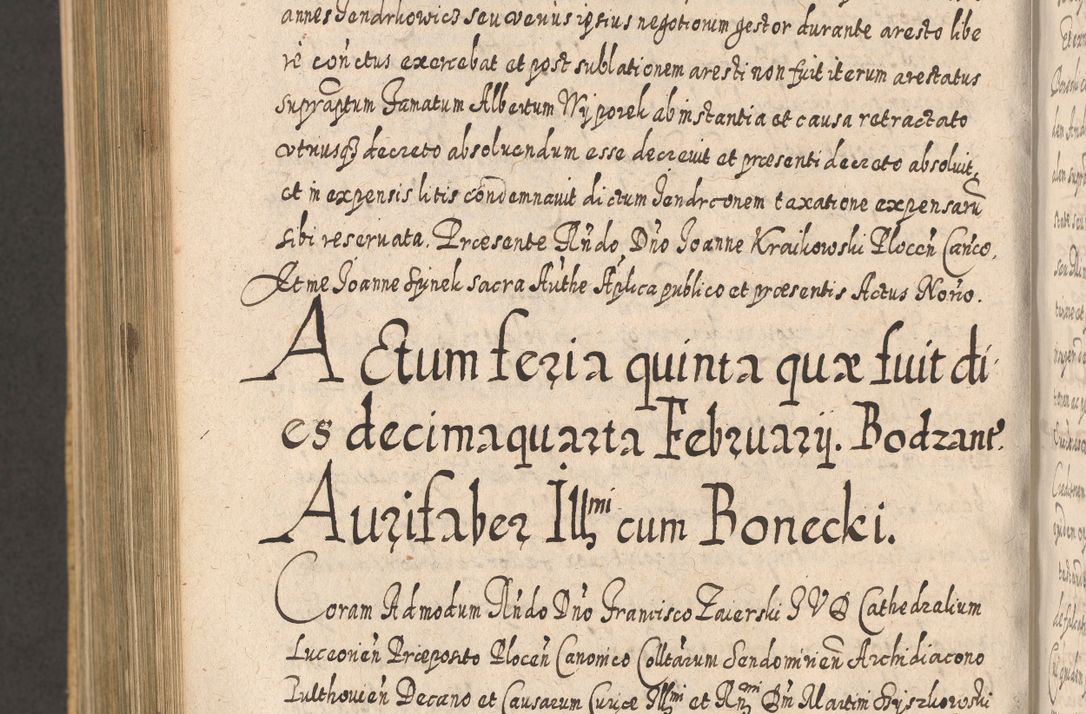 annes Jendrkowicz seu verius ipsius negotiorum gestor durante aresto libe
rè conctus exercebat et post sublationem aresti non fuit iterum arestatus
supraptum Famatum Albertum Wyporek ab instantia et causa retractato
vtriusq decreto absoluendum esse decreuit et præsenti decreto absoluit,
et in expensis litis condemnauit dictum Jendrconem taxatione expensarū
sibi reseruata. Præsente Rńdo Dńo Joanne Kraikowski Ploceń Cańco.
Et me Joanne Synek sacra Authe Aplica publico et præsentis Actus Norio.
Actum feria quinta quæ fuit di-
es decimaquarta Februarij. Bodzant.
Aurifaber Illmi cum Bonecki.
Coram Admodum Rńdo Dńo Francisco Zaierski JVD Cathedralium
Luceoneń Præposito Ploceń Canonico Colltarum Sendomirień Archidiacono
Pulthouień Decano et Causarum Curiæ Illmi et Rńmi Dńi Martini Szyszkowski